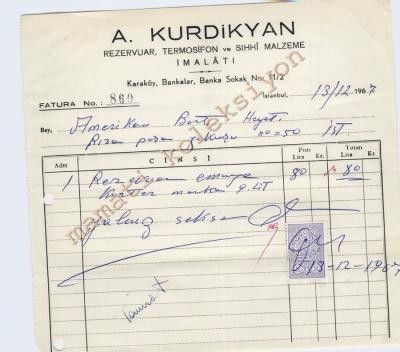 A. KURDİKYAN
REZERVUAR, TERMOSİFON ve SIHHİ MALZEME
İMALÂTI
Karaköy, Bankalar, Banka Sokak No: 11/2
FATURA No.: 860
İstanbul, 13/12 1967
Bay, Amerikan Bort Heyeti
Rıza paşa yokuşu no=50 İST
Adet CİNSİ Fiatı Lira Kr. Tutarı Lira Kr.
1 Rezervuar emaye 80 80
marka 9. LİT
yalnız seksen
13-12-1967
mamat koleksiyon